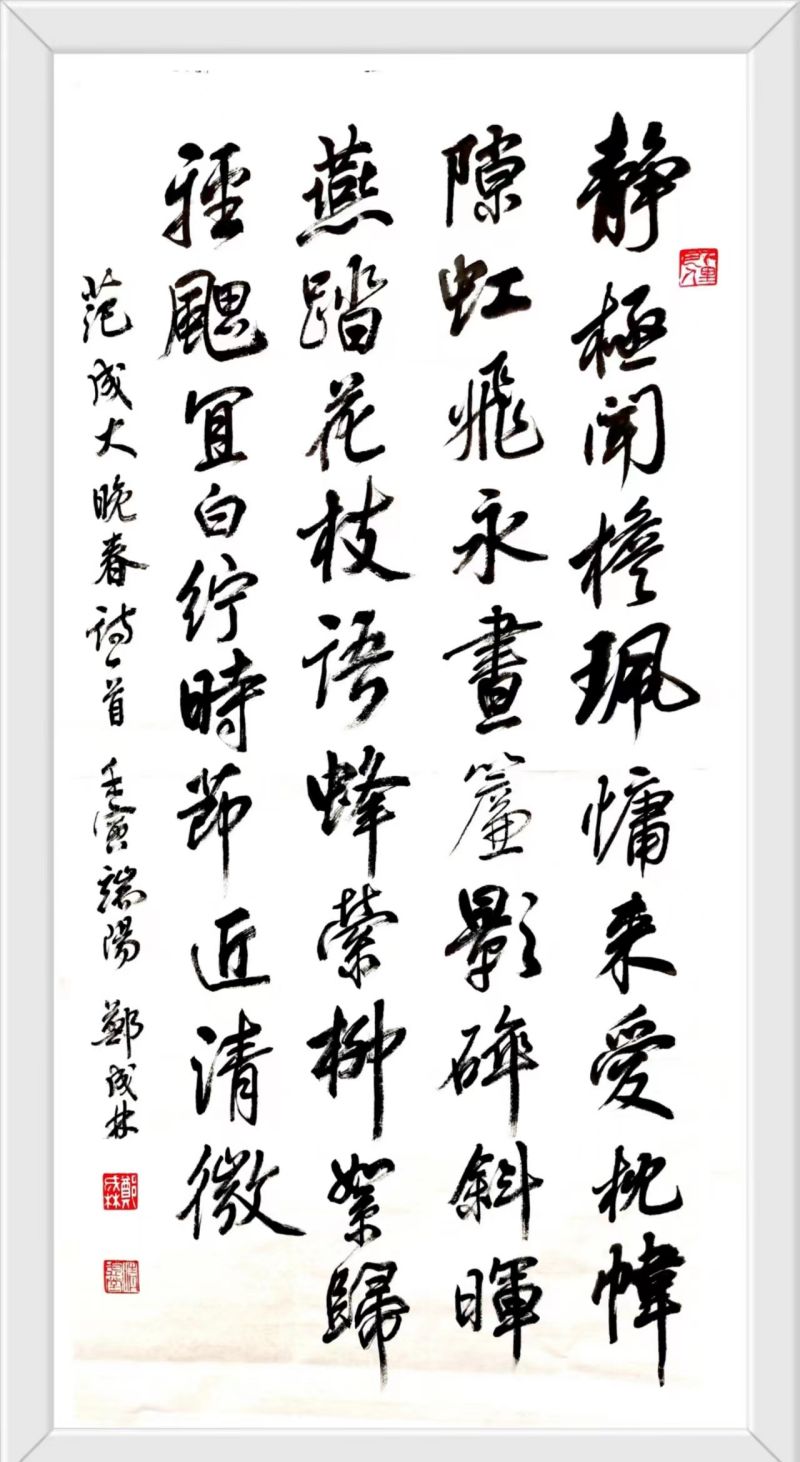 靜極聞檐珮慵来愛枕幃
隙虹飛永晝簾影碎斜暉
燕踏花枝语蜂縈柳絮歸
輕颸宜白紵時節近清微
范成大晚春诗一首 壬寅端陽 鄭成林
鄭成林